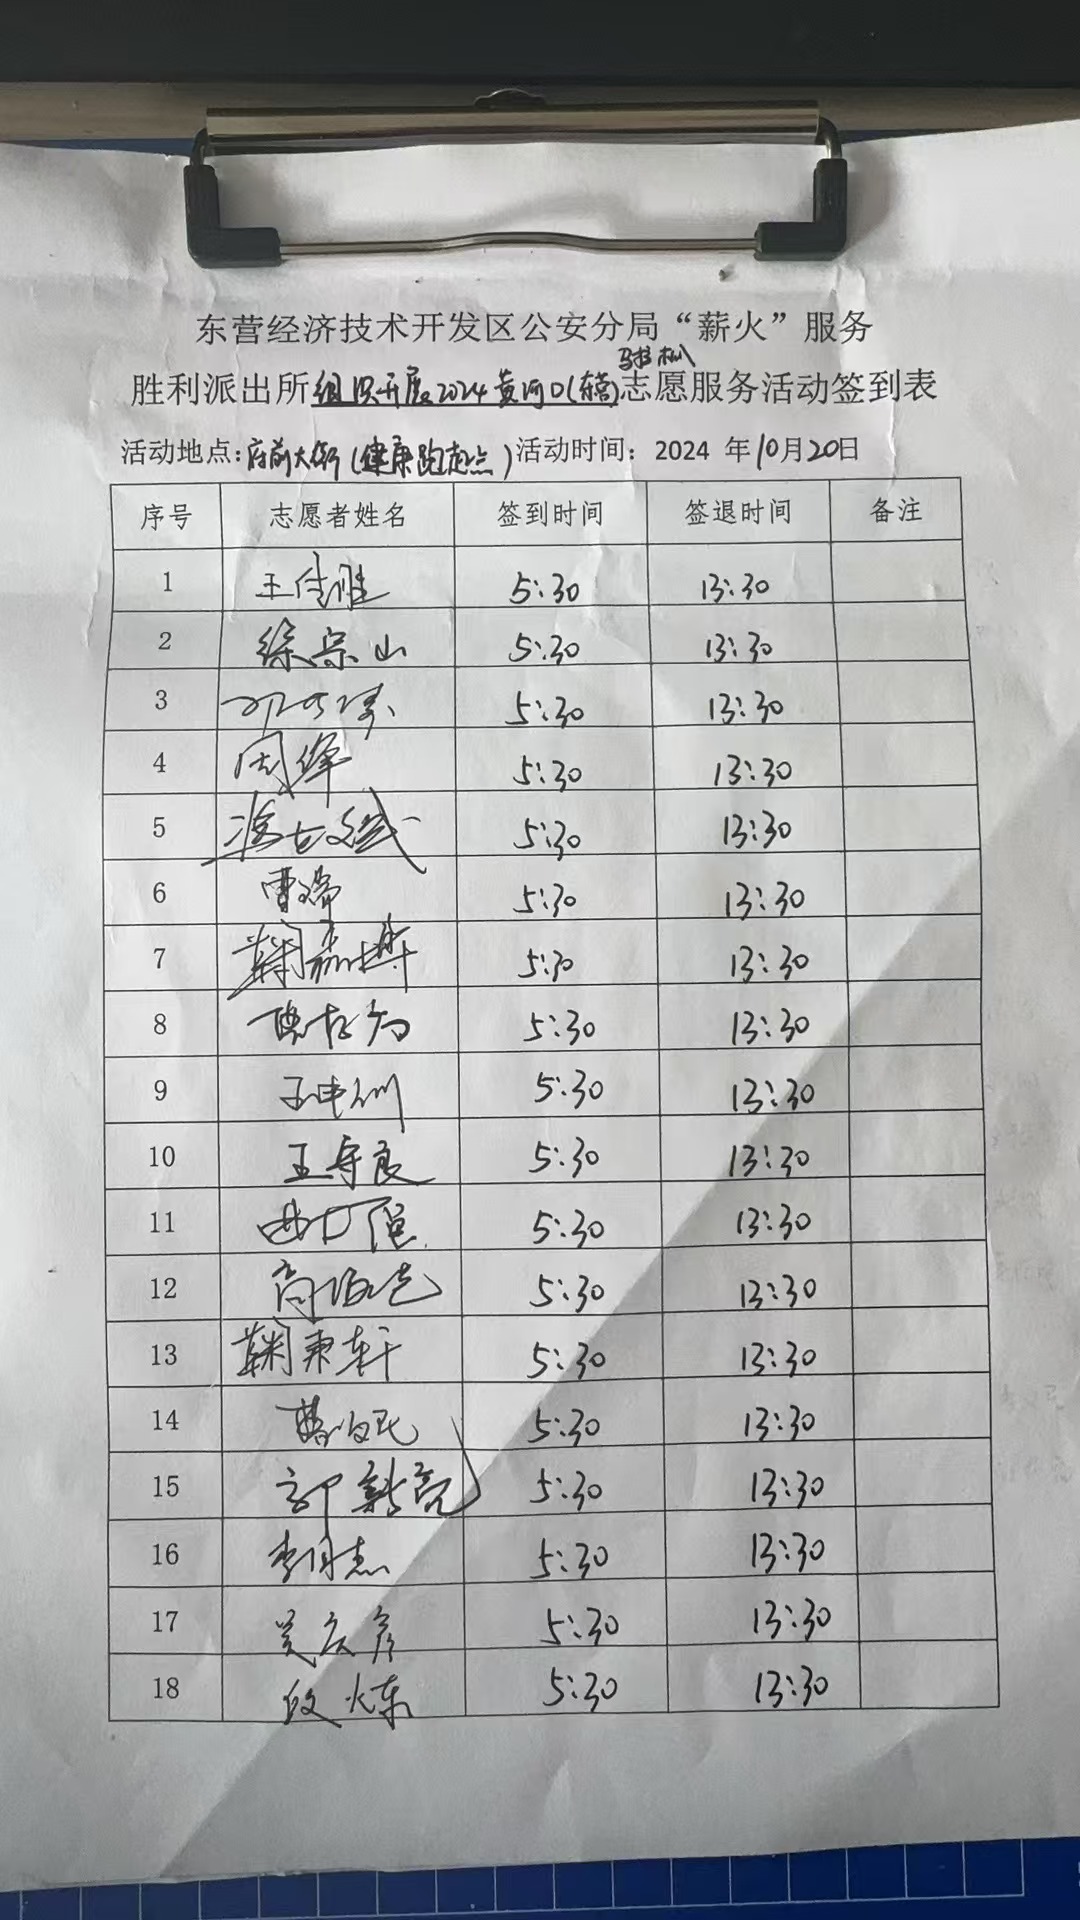 东营经济技术开发区公安分局“薪火”服务
马拉松
胜利派出所组织开展2024黄河口(东营)志愿服务活动签到表
活动地点:府前大街(健康跑起点)活动时间: 2024 年10月20日
序号 志愿者姓名 签到时间 签退时间 备注
1 王佳胜 5:30 13:30
2 徐宗山 5:30 13:30
3 5:30 13:30
4 周峰 5:30 13:30
5 5:30 13:30
6 曹瑞 5:30 13:30
7 鞠嘉烨 5:30 13:30
8 5:30 13:30
9 5:30 13:30
10 王守良 5:30 13:30
11 5:30 13:30
12 5:30 13:30
13 鞠秉轩 5:30 13:30
14 5:30 13:30
15 郭新亮 5:30 13:30
16 5:30 13:30
17 吴庆彦 5:30 13:30
18 段炼 5:30 13:30